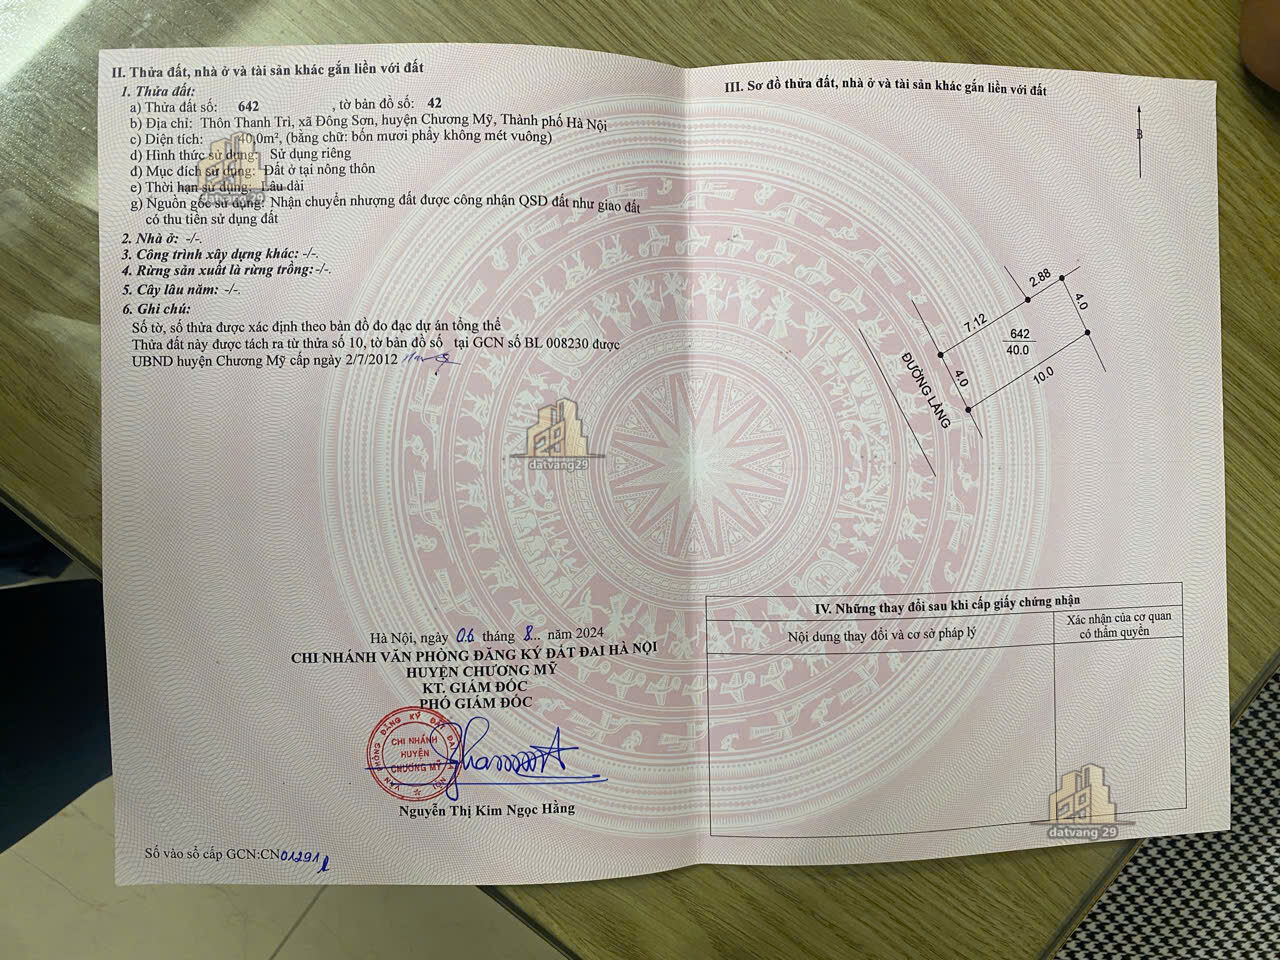 II. Thửa đất, nhà ở và tài sản khác gắn liền với đất
1. Thửa đất:
a) Thửa đất số: 642 , tờ bản đồ số: 42
b) Địa chỉ: Thôn Thanh Trì, xã Đông Sơn, huyện Chương Mỹ, Thành phố Hà Nội
c) Diện tích: 40,0m², (bằng chữ: bốn mươi phẩy không mét vuông)
d) Hình thức sử dụng: Sử dụng riêng
đ) Mục đích sử dụng: Đất ở tại nông thôn
e) Thời hạn sử dụng: Lâu dài
g) Nguồn gốc sử dụng: Nhận chuyển nhượng đất được công nhận QSD đất như giao đất
có thu tiền sử dụng đất
2. Nhà ở: -/-.
3. Công trình xây dựng khác: -/-.
4. Rừng sản xuất là rừng trồng: -/-.
5. Cây lâu năm: -/-.
6. Ghi chú:
Số tờ, số thửa được xác định theo bản đồ đo đạc dự án tổng thể
Thửa đất này được tách ra từ thửa số 10, tờ bản đồ số tại GCN số BL 008230 được
UBND huyện Chương Mỹ cấp ngày 2/7/2012
datvang29
datvang29
Hà Nội, ngày 06 tháng 8... năm 2024
CHI NHÁNH VĂN PHÒNG ĐĂNG KÝ ĐẤT ĐAI HÀ NỘI
HUYỆN CHƯƠNG MỸ
KT. GIÁM ĐỐC
PHÓ GIÁM ĐỐC
VĂN PHÒNG ĐĂNG KÝ ĐẤT ĐAI HÀ NỘI
CHI NHÁNH
HUYỆN
CHƯƠNG MỸ
Nguyễn Thị Kim Ngọc Hằng
Số vào sổ cấp GCN:CN01291
III. Sơ đồ thửa đất, nhà ở và tài sản khác gắn liền với đất
B
2.88
7.12
4.0
642
40.0
4.0
10.0
ĐƯỜNG LÀNG
IV. Những thay đổi sau khi cấp giấy chứng nhận
Nội dung thay đổi và cơ sở pháp lý
Xác nhận của cơ quan
có thẩm quyền
datvang 29